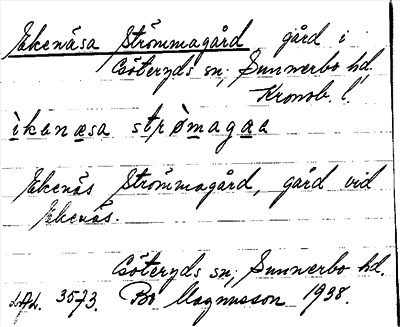 Ekenäsa Strömmagård gård i
Göteryds sn, Sunnerbo hd,
Kronob. l.
ìkenæsa strømagaa
Ekenäs Strömmagård, gård vid
Ekenäs.
Göteryds sn, Sunnerbo hd.
3573. Bo Magnusson 1938.